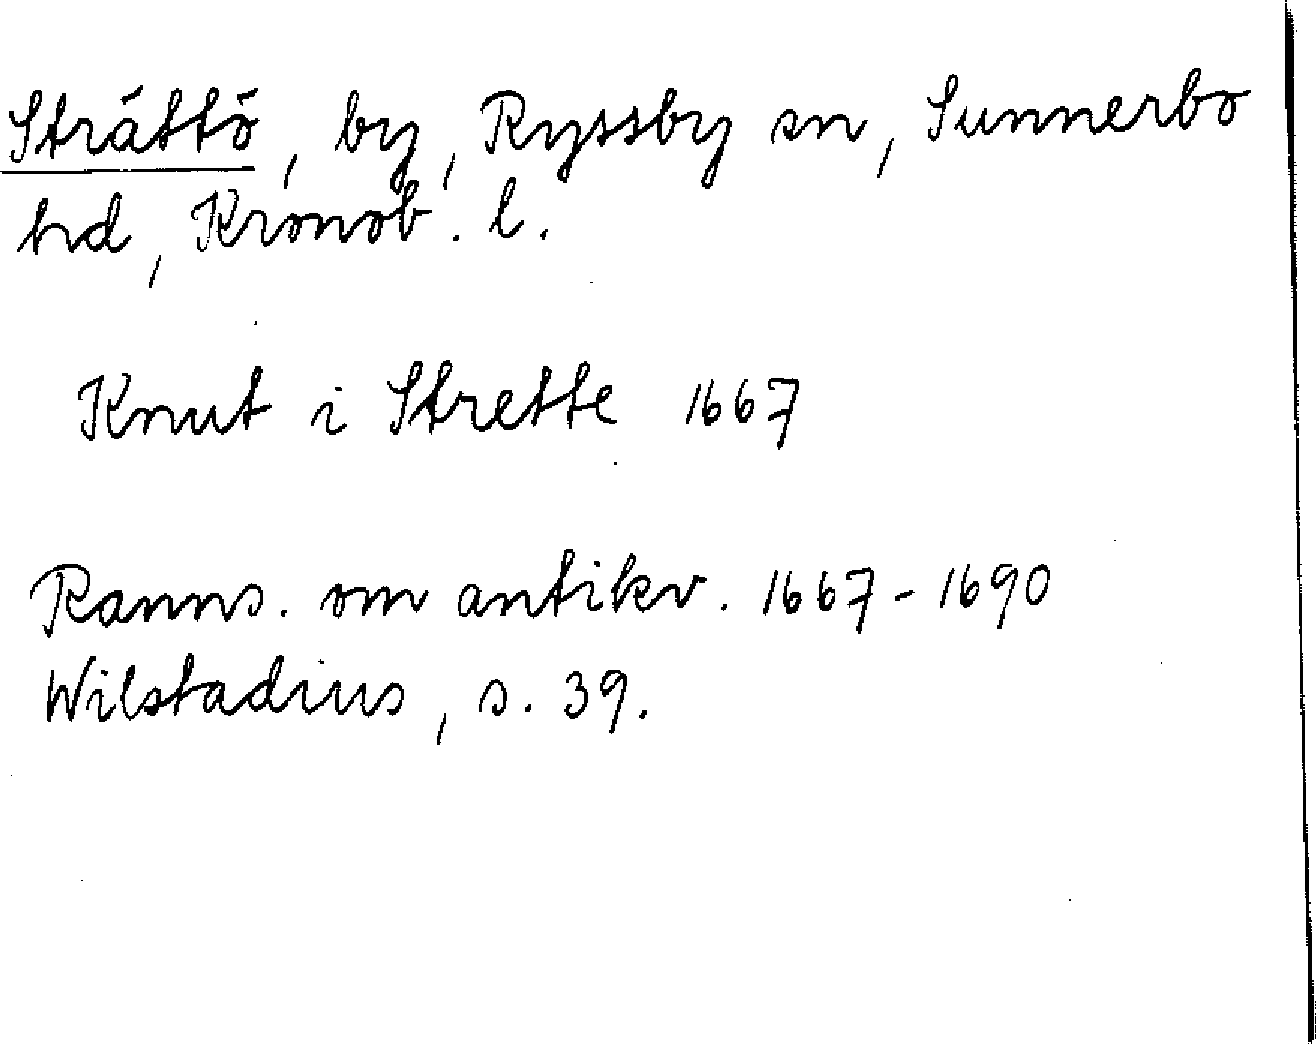 Strättö, by, Ryssby sn, Sunnerbo
hd, Kronob. l.
Knut i Strette 1667
Ranns. om antikv. 1667-1690
Wilstadius, s. 39.